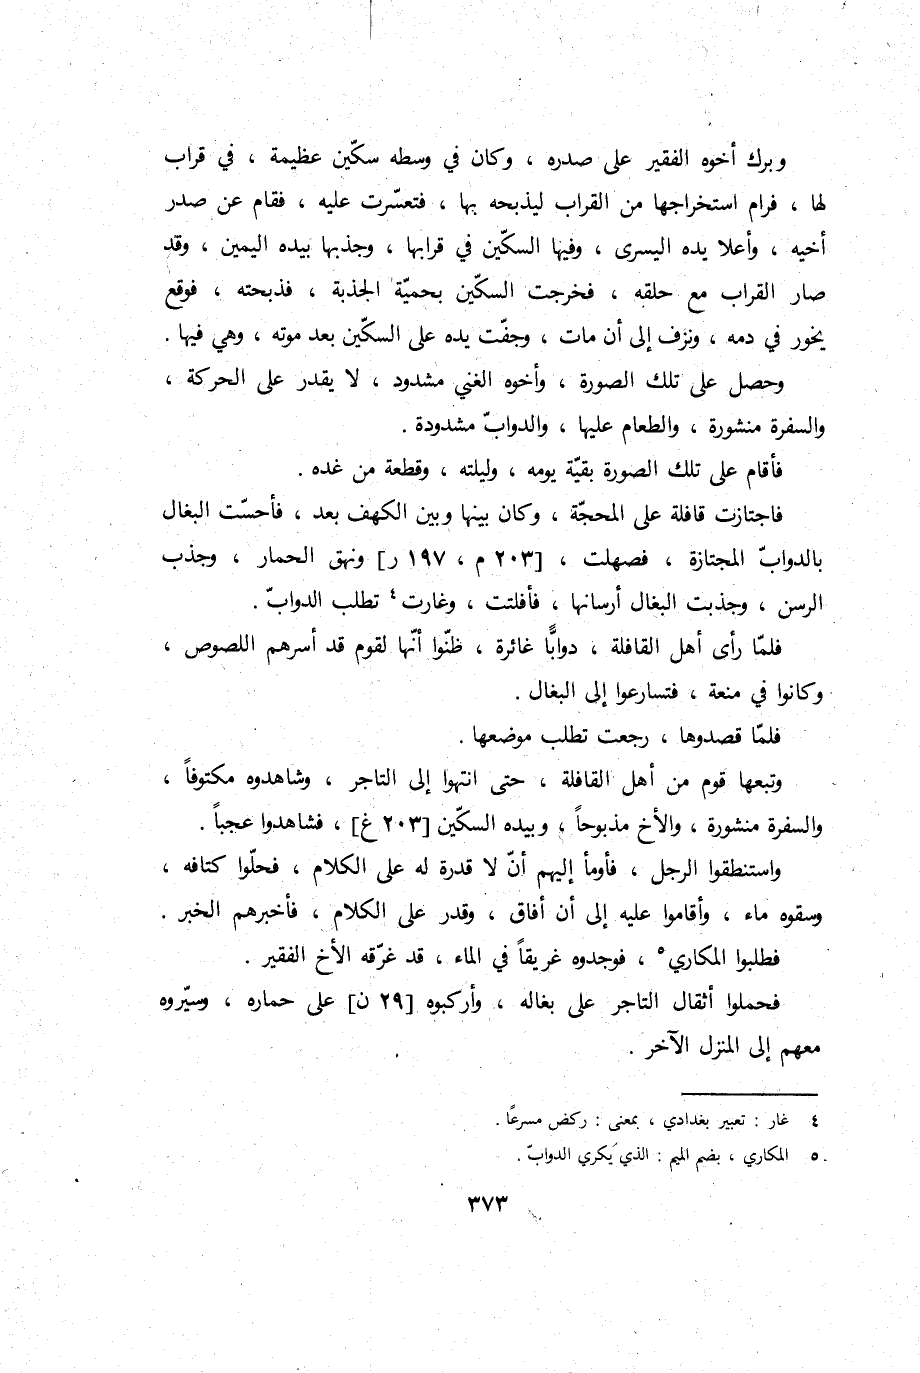 وبرك أخوه الفقير على صدره ، وكان في وسطه سكّين عظيمة ، في قراب
لها ، فرام استخراجها من القراب ليذبحه بها ، فتعسّرت عليه ، فقام عن صدر
أخيه ، وأعلا يده اليسرى ، وفيها السكّين في قرابها ، وجذبها بيده اليمين ، وقد
صار القراب مع حلقه ، فخرجت السكّين بحميّة الجذبة ، فذبحته ، فوقع
يخور في دمه ، ونزف إلى أن مات ، وجفّت يده على السكّين بعد موته ، وهي فيها .
وحصل على تلك الصورة ، وأخوه الغني مشدود ، لا يقدر على الحركة ،
والسفرة منشورة ، والطعام عليها ، والدوابّ مشدودة .
فأقام على تلك الصورة بقيّة يومه ، وليلته ، وقطعة من غده .
فاجتازت قافلة على المحجّة ، وكان بينها وبين الكهف بعد ، فأحسّت البغال
بالدوابّ المجتازة ، فصهلت ، [٢٠٣ م ، ١٩٧ ر] ونهق الحمار ، وجذب
الرسن ، وجذبت البغال أرسانها ، فأفلتت ، وغارت٤ تطلب الدوابّ .
فلمّا رأى أهل القافلة ، دوابًّا غائرة ، ظنّوا أنّها لقوم قد أسرهم اللصوص ،
وكانوا في منعة ، فتسارعوا إلى البغال .
فلمّا قصدوها ، رجعت تطلب موضعها .
وتبعها قوم من أهل القافلة ، حتى انتهوا إلى التاجر ، وشاهدوه مكتوفاً ،
والسفرة منشورة ، والأخ مذبوحاً ، وبيده السكّين [٢٠٣ غ] ، فشاهدوا عجباً .
واستنطقوا الرجل ، فأومأ إليهم أنّ لا قدرة له على الكلام ، فحلّوا كتافه ،
وسقوه ماء ، وأقاموا عليه إلى أن أفاق ، وقدر على الكلام ، فأخبرهم الخبر .
فطلبوا المكاري٥ ، فوجدوه غريقاً في الماء ، قد غرّقه الأخ الفقير .
فحملوا أثقال التاجر على بغاله ، وأركبوه [٢٩ ن] على حماره ، وسيّروه
معهم إلى المنزل الآخر .
٤ غار : تعبير بغدادي ، بمعنى : ركض مسرعًا .
٥ المكاري ، بضم الميم : الذي يَكري الدوابّ .
٣٧٣